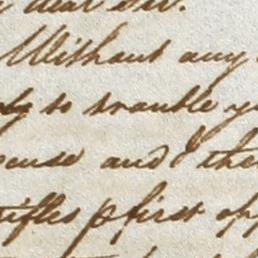 dear Sir.
Without any
to trouble
and I the
trifles p first opp